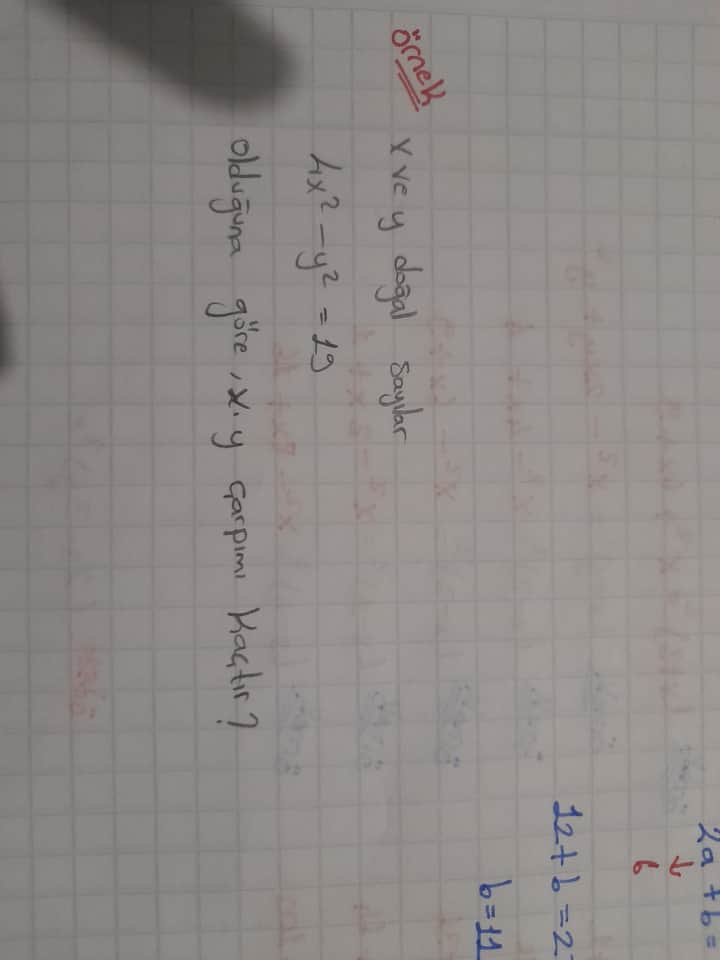 örnek x ve y doğal sayılar
4x² - y² = 19
olduğuna göre, x.y çarpımı kaçtır?
2a + b =
↓
6
12 + b = 2
b = 11